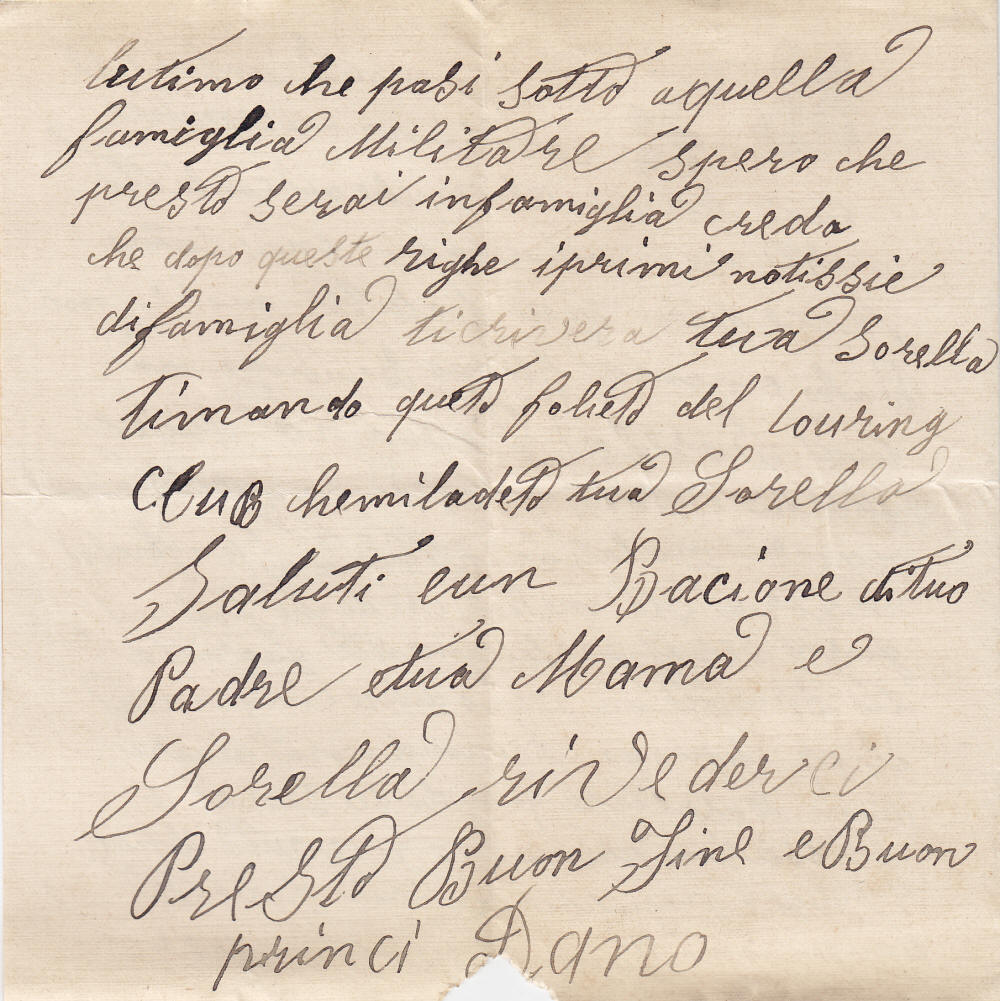 lutimo che pasi sotto aquella
famiglia Militare spero che
presto serai infamiglia credo
che dopo queste righe iprimi notissie
difamiglia ticrivera tuva Sorella
timando questo folieto del touring
CluB chemiladeto tua Sorella
Saluti eun Bacione dituo
Padre etua Mama e
Sorella rivederci
Presto Buon Fine e Buon
princi Dano